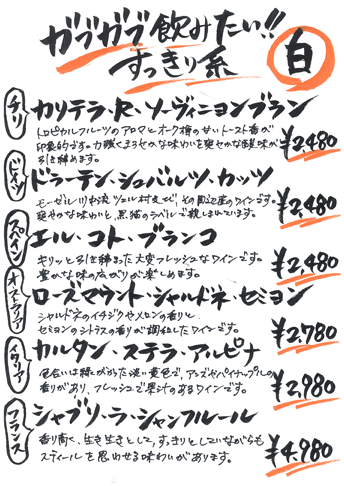 ガブガブ飲みたい!!
すっきり系
白
チリ
カリテラ・R・ソーヴィニョンブラン
トロピカルフルーツのアロマとオーク樽の甘いトースト香が
印象的です。力強くまろやかな味わいを爽やかな酸味が
引き締めます。
¥2,480
ドイツ
ドラーテン・シュバルツ・カッツ
モーゼル川中流 ツェル村及び、その周辺産のワインです。
爽やかな味わいと、黒猫のラベルで親しまれています。
¥2,480
スペイン
エル・コト・ブランコ
キリッと引き締まった大変フレッシュなワインです。
豊かな味の広がりが楽しめます。
¥2,480
オーストラリア
ローズマウント・シャルドネ・セミヨン
シャルドネのイチジクやメロンの香りと
セミヨンのシトラスの香りが調和したワインです。
¥2,780
イタリア
カルタン・ステラ・アルピナ
色合いは緑がかった淡い黄色で、アンズやパイナップルの
香りがあり、フレッシュで果汁のあるワインです。
¥2,980
フランス
シャブリ・ラ・シャンフルール
香り高く、生き生きとして、すっきりとしていながらも
スティールを思わせる味わいがあります。
¥4,980